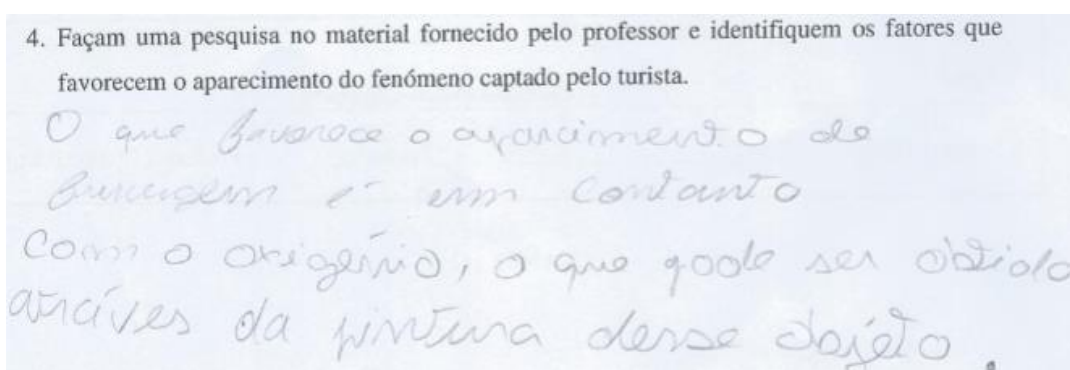 4. Façam uma pesquisa no material fornecido pelo professor e identifiquem os fatores que
favorecem o aparecimento do fenómeno captado pelo turista.
O que favorece o aparcimento de
é em contanto
com o origénio, o que pode ser obtido
atráves da pintura desse objéto.